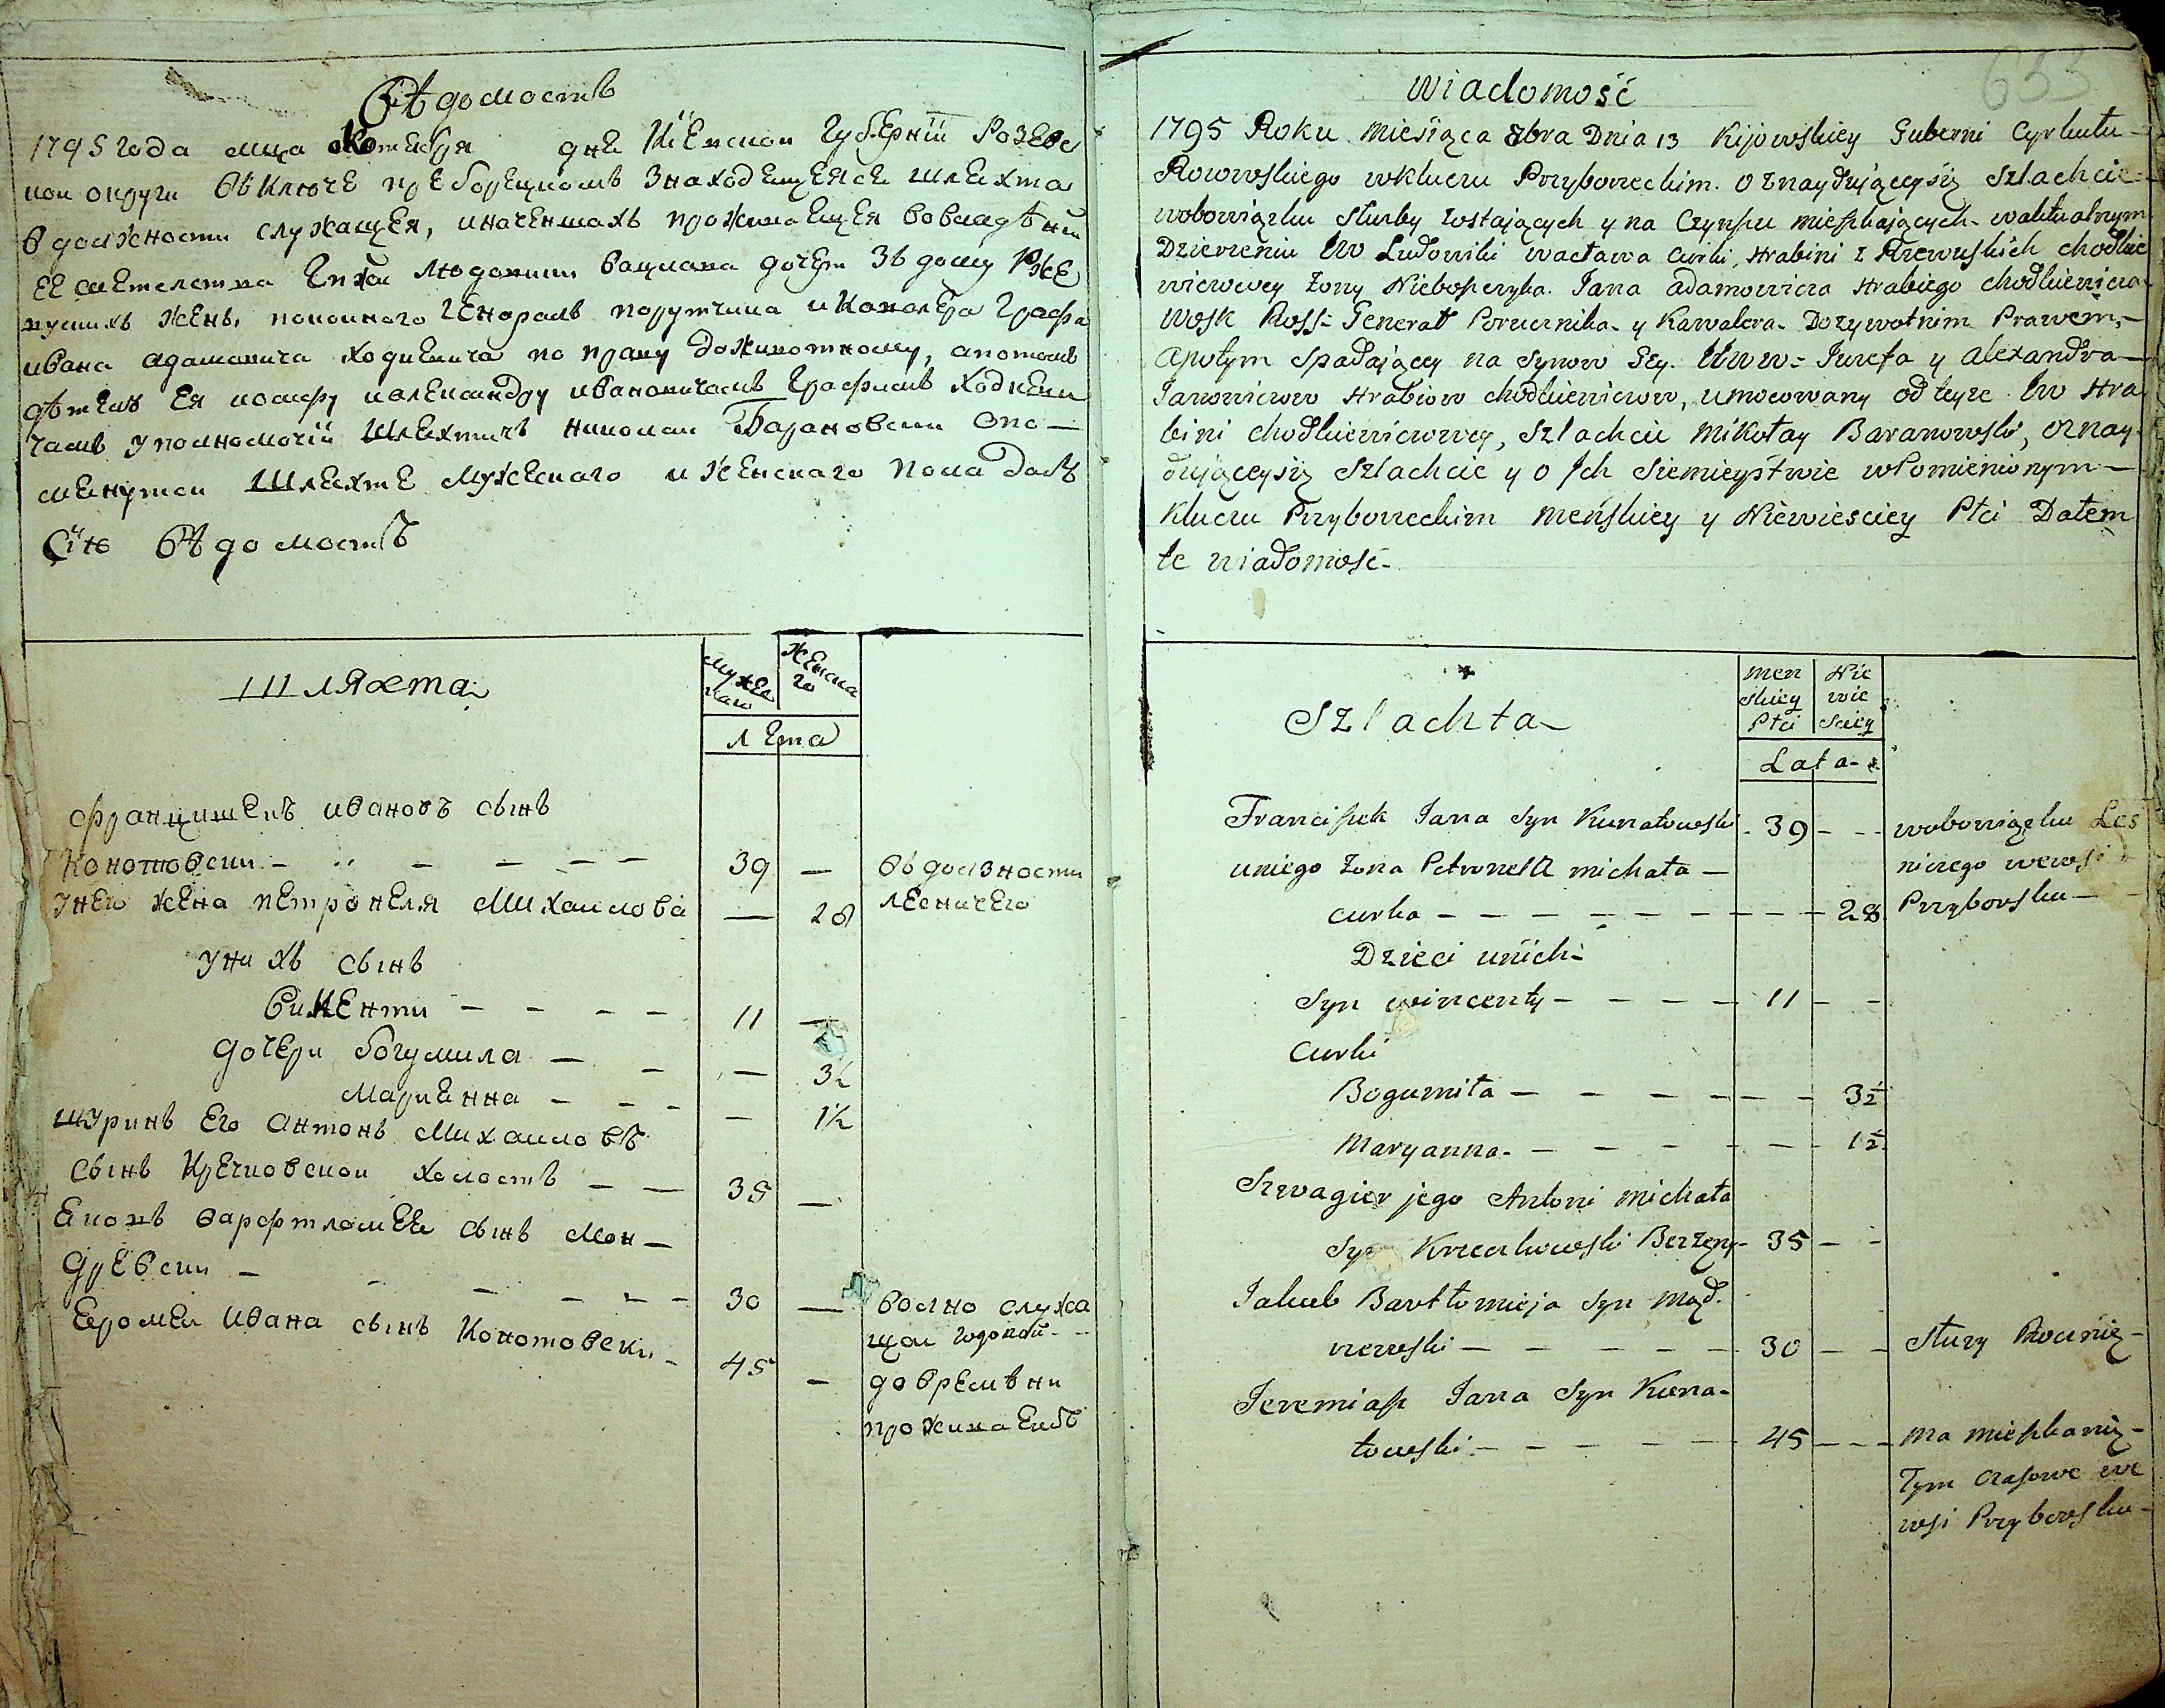 Вѣдомость
1795 года мца Октебря дне Кіевской Губерніи
ной округи въ Ключе знаходещеесе шлехта
в должности служащея, проживаещея во владѣнии
дочери зъ дому
жены покоиного Генераль порутчика и Кавалера Графа
ивана адамовича ходкевича по праву доживотному, апотомъ
дѣтемъ ея ивановичамъ Графамъ Ходкеви
чамъ уполномочіи Шлехтичъ николаи Барановски опо-
менутои Шлехте Мужескаго и женскаго пола далъ
Сію вѣдомость
Шляхта
мужес
каго
женска
го
лета
францишекъ ивановъ сынъ
Конотовски - - - - -
39 —
въ долзности
лесничего
унего жена петронеля Михаилова
— 28
унихъ сынъ
Викенти - - - -
11 —
дочери богумила - -
— 3½
Мариенна - - -
— 1½
шуринъ его антонъ Михаиловъ
сынъ Кречковскои холостъ - -
35 —
сынъ Мон-
древски - - - - -
30 —
волно служа
щои
ивана сынъ Конотовски -
45 —
до времѣни
проживаетъ
633
Wiadomość
1795 Roku miesiąca 8bra Dnia 13 Kijowskiey Guberni Cyrkułu-
wkluczu Przyborreckim. Oznayduiącey się Szlachcie-
wobowiązku służby zostaiących y na Czynszu mieszkaiących- waktualnym
Dzierzeniu JW Ludowiki wacława curki, Hrabini z Rzewuskich chodkie
wiczowey żony Nieboszczyka Jana adamowicza Hrabiego chodkiewicza
Wosk Ross- Generał Porucznika- y Kawalera- Dozywotnim Prawem,-
apotym spadaiącey na synow Jey. JWW- Juzefa y alexandra-
Janowiczow Hrabiow chodkiewiczow, umocowany od teyze JW Hra
bini chodkiewiczowey, Szlachcic Mikołay Baranowski, oznay-
duiącey się Szlachcie y o Jch Siemieystwie wPomienionym-
Kluczu Przyborreckim Męńskiey y Niewiesciey Płci Datem
te wiadomość-
Szlachta-
men
skiey
Płci
Nie
wie
sciey
Lata-
Franciszek Jana syn Kunatowski - 39 - -
wobowiązku Leś
niczego wewsi
Przyborsku-
uniego żona Petronella michała -
curka - - - - - - - - 28
Dzieci unich-
Syn wincenty - - - - 11 - -
Curki
Bogumiła - - - - - - 3½
Maryanna- - - - - - - 1½
Szwagier jego Antoni michała
Syn Krzeczkowski Bezżeny- 35 - -
Jakub Bartłomieja syn Mąd-
rzewski - - - - - 30 - -
słuzy Rocznię-
Jeremiasz Jana syn Kuna-
towski - - - - - 45 - - -
Ma mieszkanię-
Tym czasowe we
wsi Przyborsku-